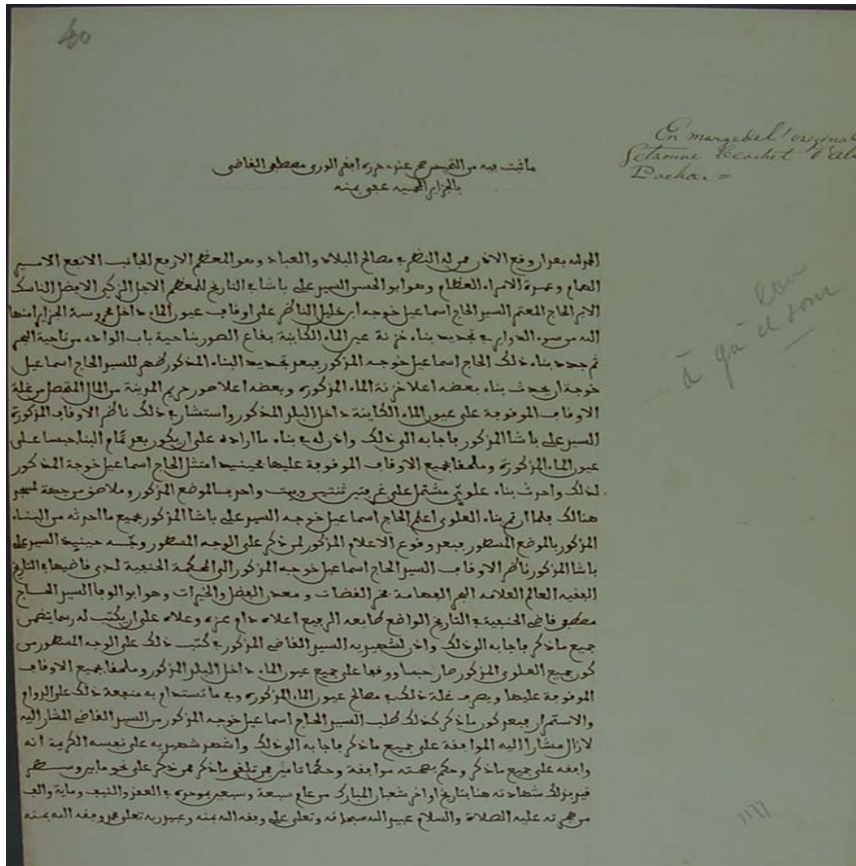 40
En marge de l'original
se trouve le cachet d'Ali
Pacha =
ما ثبت فيه من التحبيس صح عند محرره افقر الورى مصطفى القاضي
بالجزاير المحمية عفي بمنه
الحمد لله بعد ان وقع الاذن ممن له النظر في مصالح البلاد والعباد وهو المعظم الارفع الجانب الانفع الاسير
الهمام وعمدة الامراء العظام وهو ابو الحسن السيد علي باشا في التاريخ للمعظم الاجل الزكي الافضل الناسك
الابر الحاج المعتمر السيد الحاج اسماعيل خوجه ابن خليل الناظر على اوقاف عيون الماء داخل محروسة الجزاير امنها
الله من سوء الدواير في تجديد بناء خزنة عين الماء الكاينة بقاع الصور بناحية باب الواد من ناحية البحر
ثم جدد بناء ذلك الحاج اسماعيل خوجه المذكور فبعد تجديد البناء المذكور ظهر للسيد الحاج اسماعيل
خوجة ان يحدث بناء بعضه اعلا خزنة الماء المذكورة وبعضه اعلا صور حريم المدينة من المال المتحصل من غلة
الاوقاف الموقوفة على عيون الماء الكاينة داخل البلد المذكور واستشار في ذلك ناظر الاوقاف المذكورة
السيد علي باشا المذكور فاجابه الى ذلك واذن له في بناء ما اراده على ان يكون بعد تمام البناء حبسا على
عيون الماء المذكورة وملحقا بجميع الاوقاف الموقوفة عليها فحينيذ امتثل الحاج اسماعيل خوجة المذكور
لذلك واحدث بناء علوي مشتمل على غرفتين ثنتين وبيت واحد بالموضع المذكور وملاصق من جهة لمسجد
هنالك فلما ان تم بناء العلوي اعلم الحاج اسماعيل خوجه السيد علي باشا المذكور بجميع ما احدثه من البناء
المذكور بالموضع المسطور فبعد وقوع الاعلام المذكور لمن ذكر على الوجه المسطور وجه حينيذ السيد علي
باشا المذكور ناظر الاوقاف السيد الحاج اسماعيل خوجه المذكور الى المحكمة الحنفية لدى قاضيها في التاريخ
الفقيه العالم العلامه البحر الفهامة فخر القضات ومعدن الفضل والخيرات وهو ابو الوفا السيد الحاج
مصطفى قاضي الحنفية في التاريخ الواضع طابعه الرفيع اعلاه دام عزه وعلاه على ان يكتب له رسما يتضمن
جميع ما ذكر فاجابه الى ذلك واذن لشهيديه السيد القاضي المذكور في كتب ذلك على الوجه المسطور من
كون جميع العلوي المذكور صار حبسا ووقفا على جميع عيون الماء داخل البلد المذكور وملحقا بجميع الاوقاف
الموقوفة عليها ويصرف غلة ذلك في مصالح عيون الماء المذكورة وفي ما تستدام به منفعة ذلك على الدوام
والاستمرار فبعد كون ما ذكر كذلك طلب السيد الحاج اسماعيل خوجه المذكور من السيد القاضي المشار اليه
لازال مشارا اليه الموافقة على جميع ما ذكر فاجابه الى ذلك واشهد شهيديه على نفسه الكريمة انه
وافقه على جميع ما ذكر وحكم بصحته موافقة وحكما تامين فمن تلقى ما ذكر ممن ذكر على نحو ما بين وسطر
قيد بذلك شهادته هنا بتاريخ اواخر شعبان المبارك من عام سبعة وسبعين وماية والف
من هجرته عليه الصلاة والسلام عبيد الله سبحانه وتعالى علي وفقه الله بمنه وعبيد ربه تعالى وفقه الله بمنه
1177